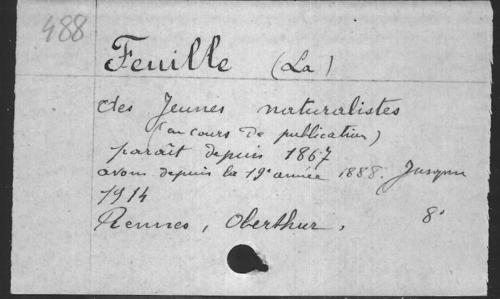 488
Feuille (La)
des Jeunes naturalistes
(en cours de publication)
paraît depuis 1867
avons depuis la 19e année 1888. Jusque
1914
Rennes, Oberthur. 8°